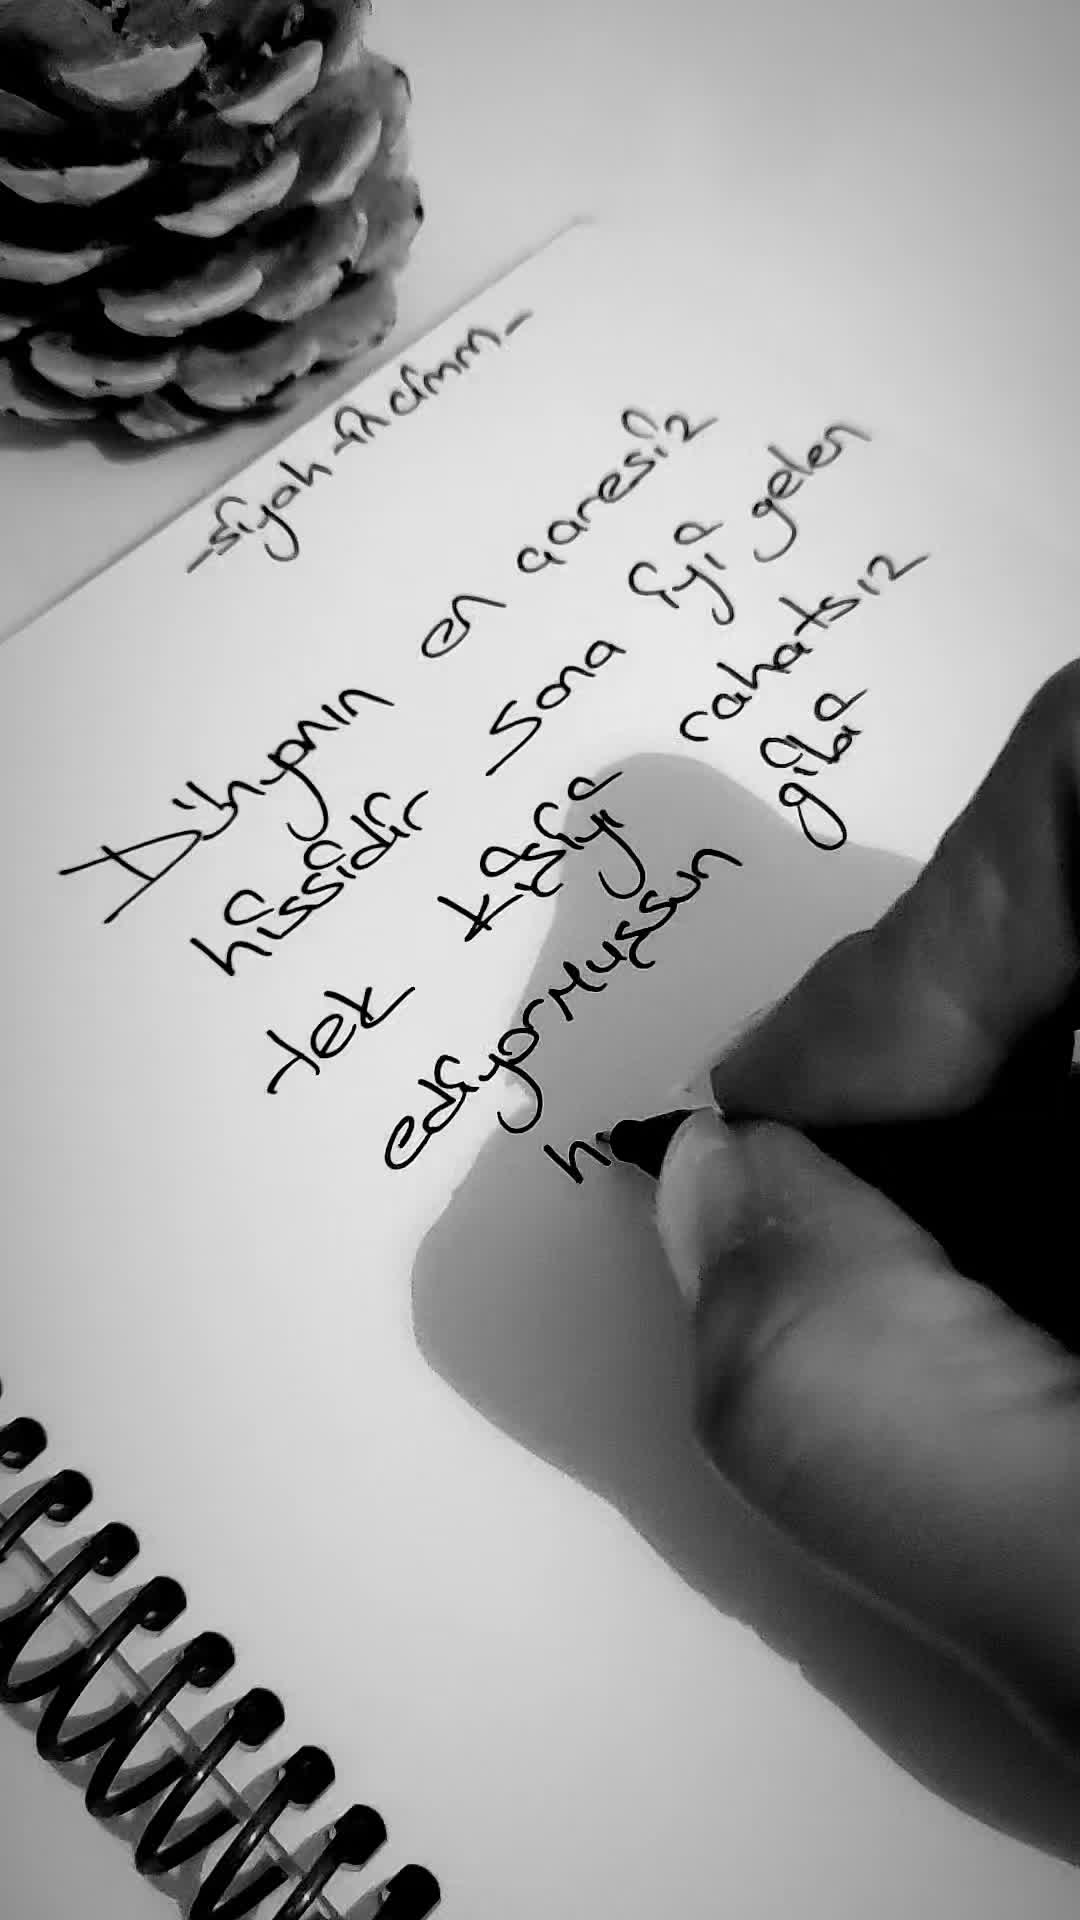 -siyah-incimm-
Dünyanın en çaresiz
hissidir sana iyi gelen
tek kişiyi rahatsız
ediyormuşsun gibi
h